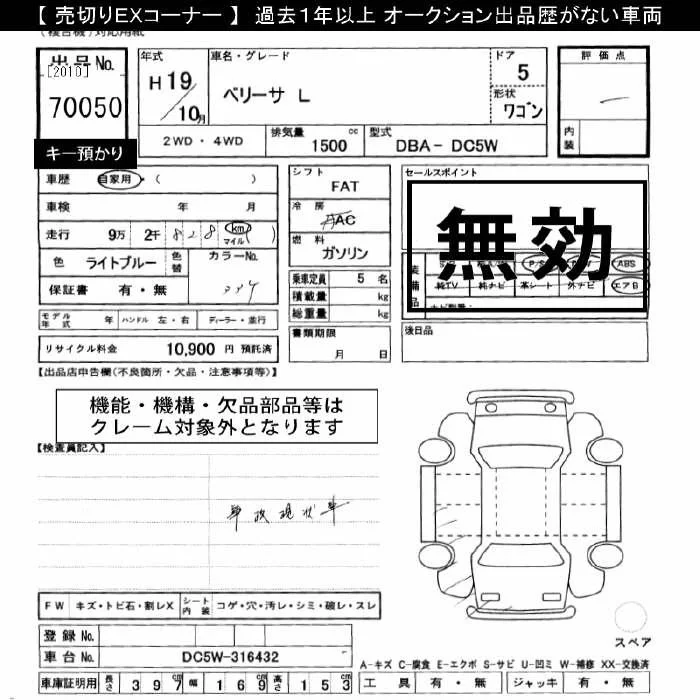 【 売切りEXコーナー 】 過去1年以上 オークション出品歴がない車両
(複合機)対応用紙
出品No.
[2010]
70050
キー預かり
年式
H 19/10月
車名・グレード
ベリーサ L
ドア
5
形状
ワゴン
評価点
内装
2WD・4WD
排気量 1500 cc
型式 DBA- DC5W
車歴 自家用・( )
車検 年 月
走行 9万 2千 828 km マイル ( )
色 ライトブルー 色替 カラーNo.
保証書 有・無
モデル年式 年 ハンドル 左・右 ディーラー・並行
リサイクル料金 10,900 円 預託済
シフト
FAT
冷房
AAC
燃料
ガソリン
乗車定員 5 名
積載量 kg
総重量 kg
書類期限
月 日
セールスポイント
無効
装備品
P/S
ABS
純TV 純ナビ 革シート 外ナビ エアB
後日品
【出品店申告欄(不良箇所・欠品・注意事項等)】
機能・機構・欠品部品等は
クレーム対象外となります
【検査員記入】
事故現状車
FW キズ・トビ石・割レX シート内装 コゲ・穴・汚レ・シミ・破レ・スレ
登録No.
車台No. DC5W-316432
車庫証明用 長さ 397cm 幅 169cm 高さ 153cm
スペア
A-キズ C-腐食 E-エクボ S-サビ U-凹ミ W-補修 XX-交換済
工具 有・無 ジャッキ 有・無